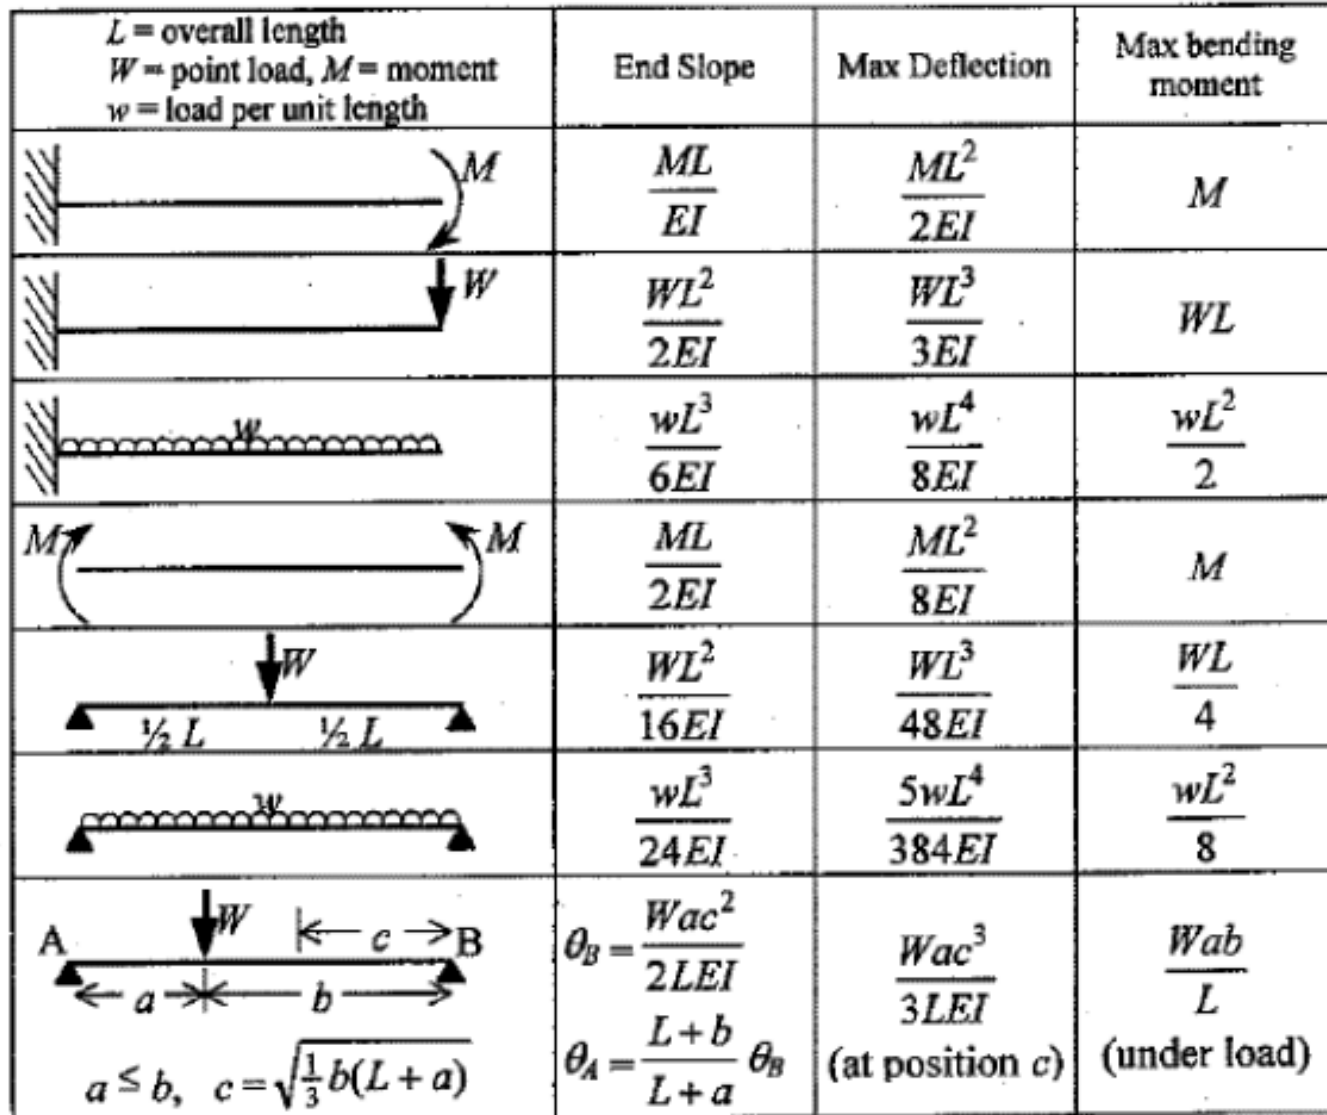 L = overall length
W = point load, M = moment
w = load per unit length
End Slope
Max Deflection
Max bending
moment
M
ML/EI
ML²/2EI
M
W
WL²/2EI
WL³/3EI
WL
w
wL³/6EI
wL⁴/8EI
wL²/2
M M
ML/2EI
ML²/8EI
M
W
½ L ½ L
WL²/16EI
WL³/48EI
WL/4
w
wL³/24EI
5wL⁴/384EI
wL²/8
W
A c B
a b
a ≤ b, c = √(⅓b(L + a))
θB = Wac²/2LEI
θA = (L + b)/(L + a) θB
Wac³/3LEI
(at position c)
Wab/L
(under load)